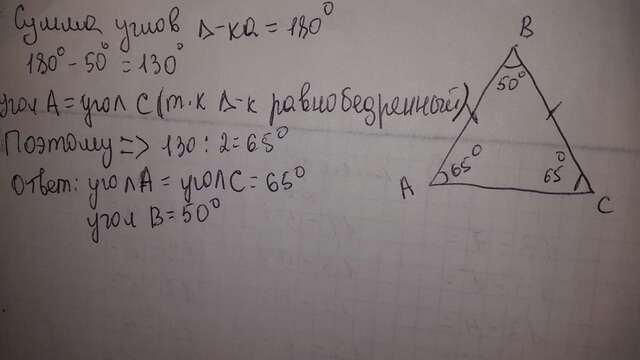 Сумма углов Δ-ка = 180°
180° - 50° = 130°
угол А = угол С (т.к Δ-к равнобедренный)
Поэтому => 130 : 2 = 65°
Ответ: угол А = угол С = 65°
угол В = 50°
В
50°
А
65°
65°
С